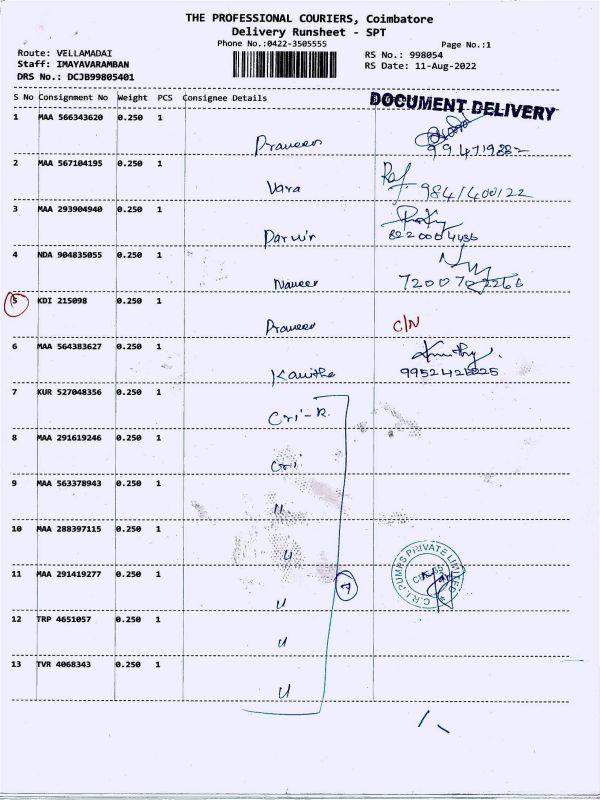 THE PROFESSIONAL COURIERS, Coimbatore
Delivery Runsheet - SPT
Phone No.:0422-3505555
Page No.:1
Route: VELLAMADAI
RS No.: 998054
Staff: IMAYAVARAMBAN
RS Date: 11-Aug-2022
DRS No.: DCJB99805401
S No Consignment No Weight PCS Consignee Details
DOCUMENT DELIVERY
1 MAA 566343620 0.250 1
Praveen
2 MAA 567104195 0.250 1
Vara 984/400122
3 MAA 293904940 0.250 1
Darwin 8220004436
4 NDA 904835055 0.250 1
Naveen
5 KDI 215098 0.250 1
Praveen C/N
6 MAA 564383627 0.250 1
Kavitha
7 KUR 527048356 0.250 1
Cri-R.
8 MAA 291619246 0.250 1
Cri
9 MAA 563378943 0.250 1
u
10 MAA 288397115 0.250 1
u
C.R.I. PUMPS PRIVATE LIMITED
11 MAA 291419277 0.250 1
7
u
12 TRP 4651057 0.250 1
u
13 TVR 4068343 0.250 1
u